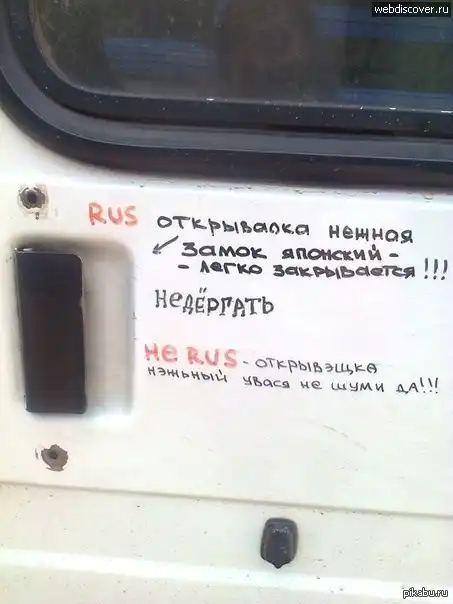 webdiscover.ru
RUS открывалка нежная
замок японский -
- легко закрывается!!!
НЕДЁРГАТЬ
НЕ RUS - открывэщка
нэжьный увася не шуми да!!!
pikabu.ru